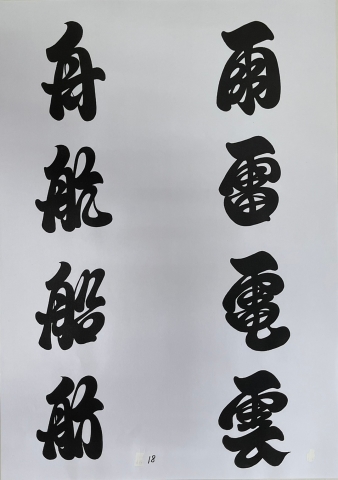 雨雷電雲
舟航船舫
18